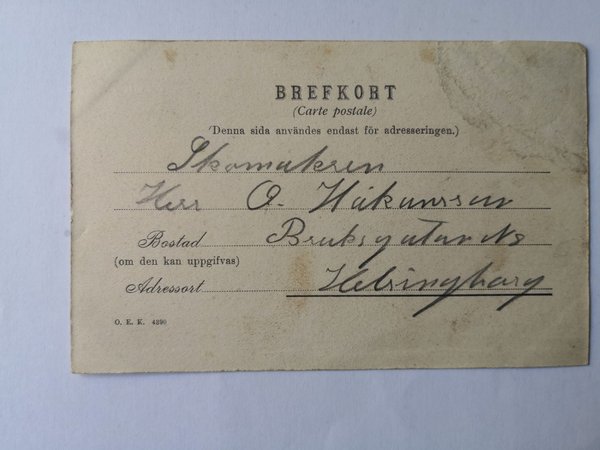 BREFKORT
(Carte postale)
(Denna sida användes endast för adresseringen.)
Skomakren
Herr O. Håkansson
Bostad Bruksgatan
(om den kan uppgifvas)
Adressort Helsingborg
O. E. K. 4290